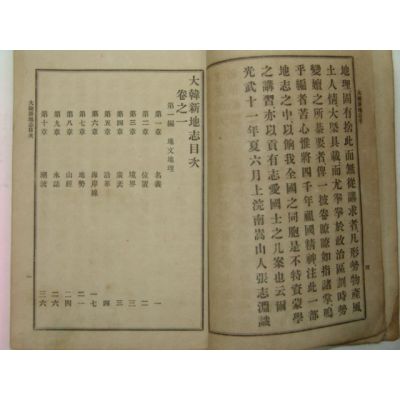 地理固有捨此而無從講求者凡形勢物産風
土人情大槩具載而尤拳拳於政治區劃時勢
變嬗之所綦要者俾一披卷瞭瞭如指諸掌嗚
乎編者苦心惟將四千年祖國精神注此一部
地志之中以餉我全國之同胞是不特資蒙學
之講習亦以貢有志愛國士之几案也云爾
光武十一年夏六月上浣南嵩山人張志淵識
大韓新地志目次
卷之一
第一編 地文地理
第一章 名義 一
第二章 位置 一
第三章 境界 三
第四章 廣袤 三
第五章 沿革 四
第六章 海岸線 一七
第七章 地勢 二一
第八章 山經 二四
第九章 水誌 二六
第十章 潮流 三六
大韓新地志目次 一